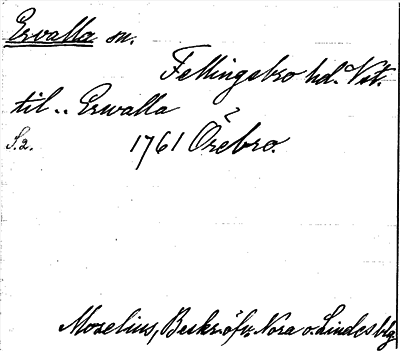 Ervalla sn.
Fellingsbro hd. Vst.
til.. Erwalla
S. 2. 1761 Örebro.
Moxelius, Beskr. öfv. Nora o. Lindesblg